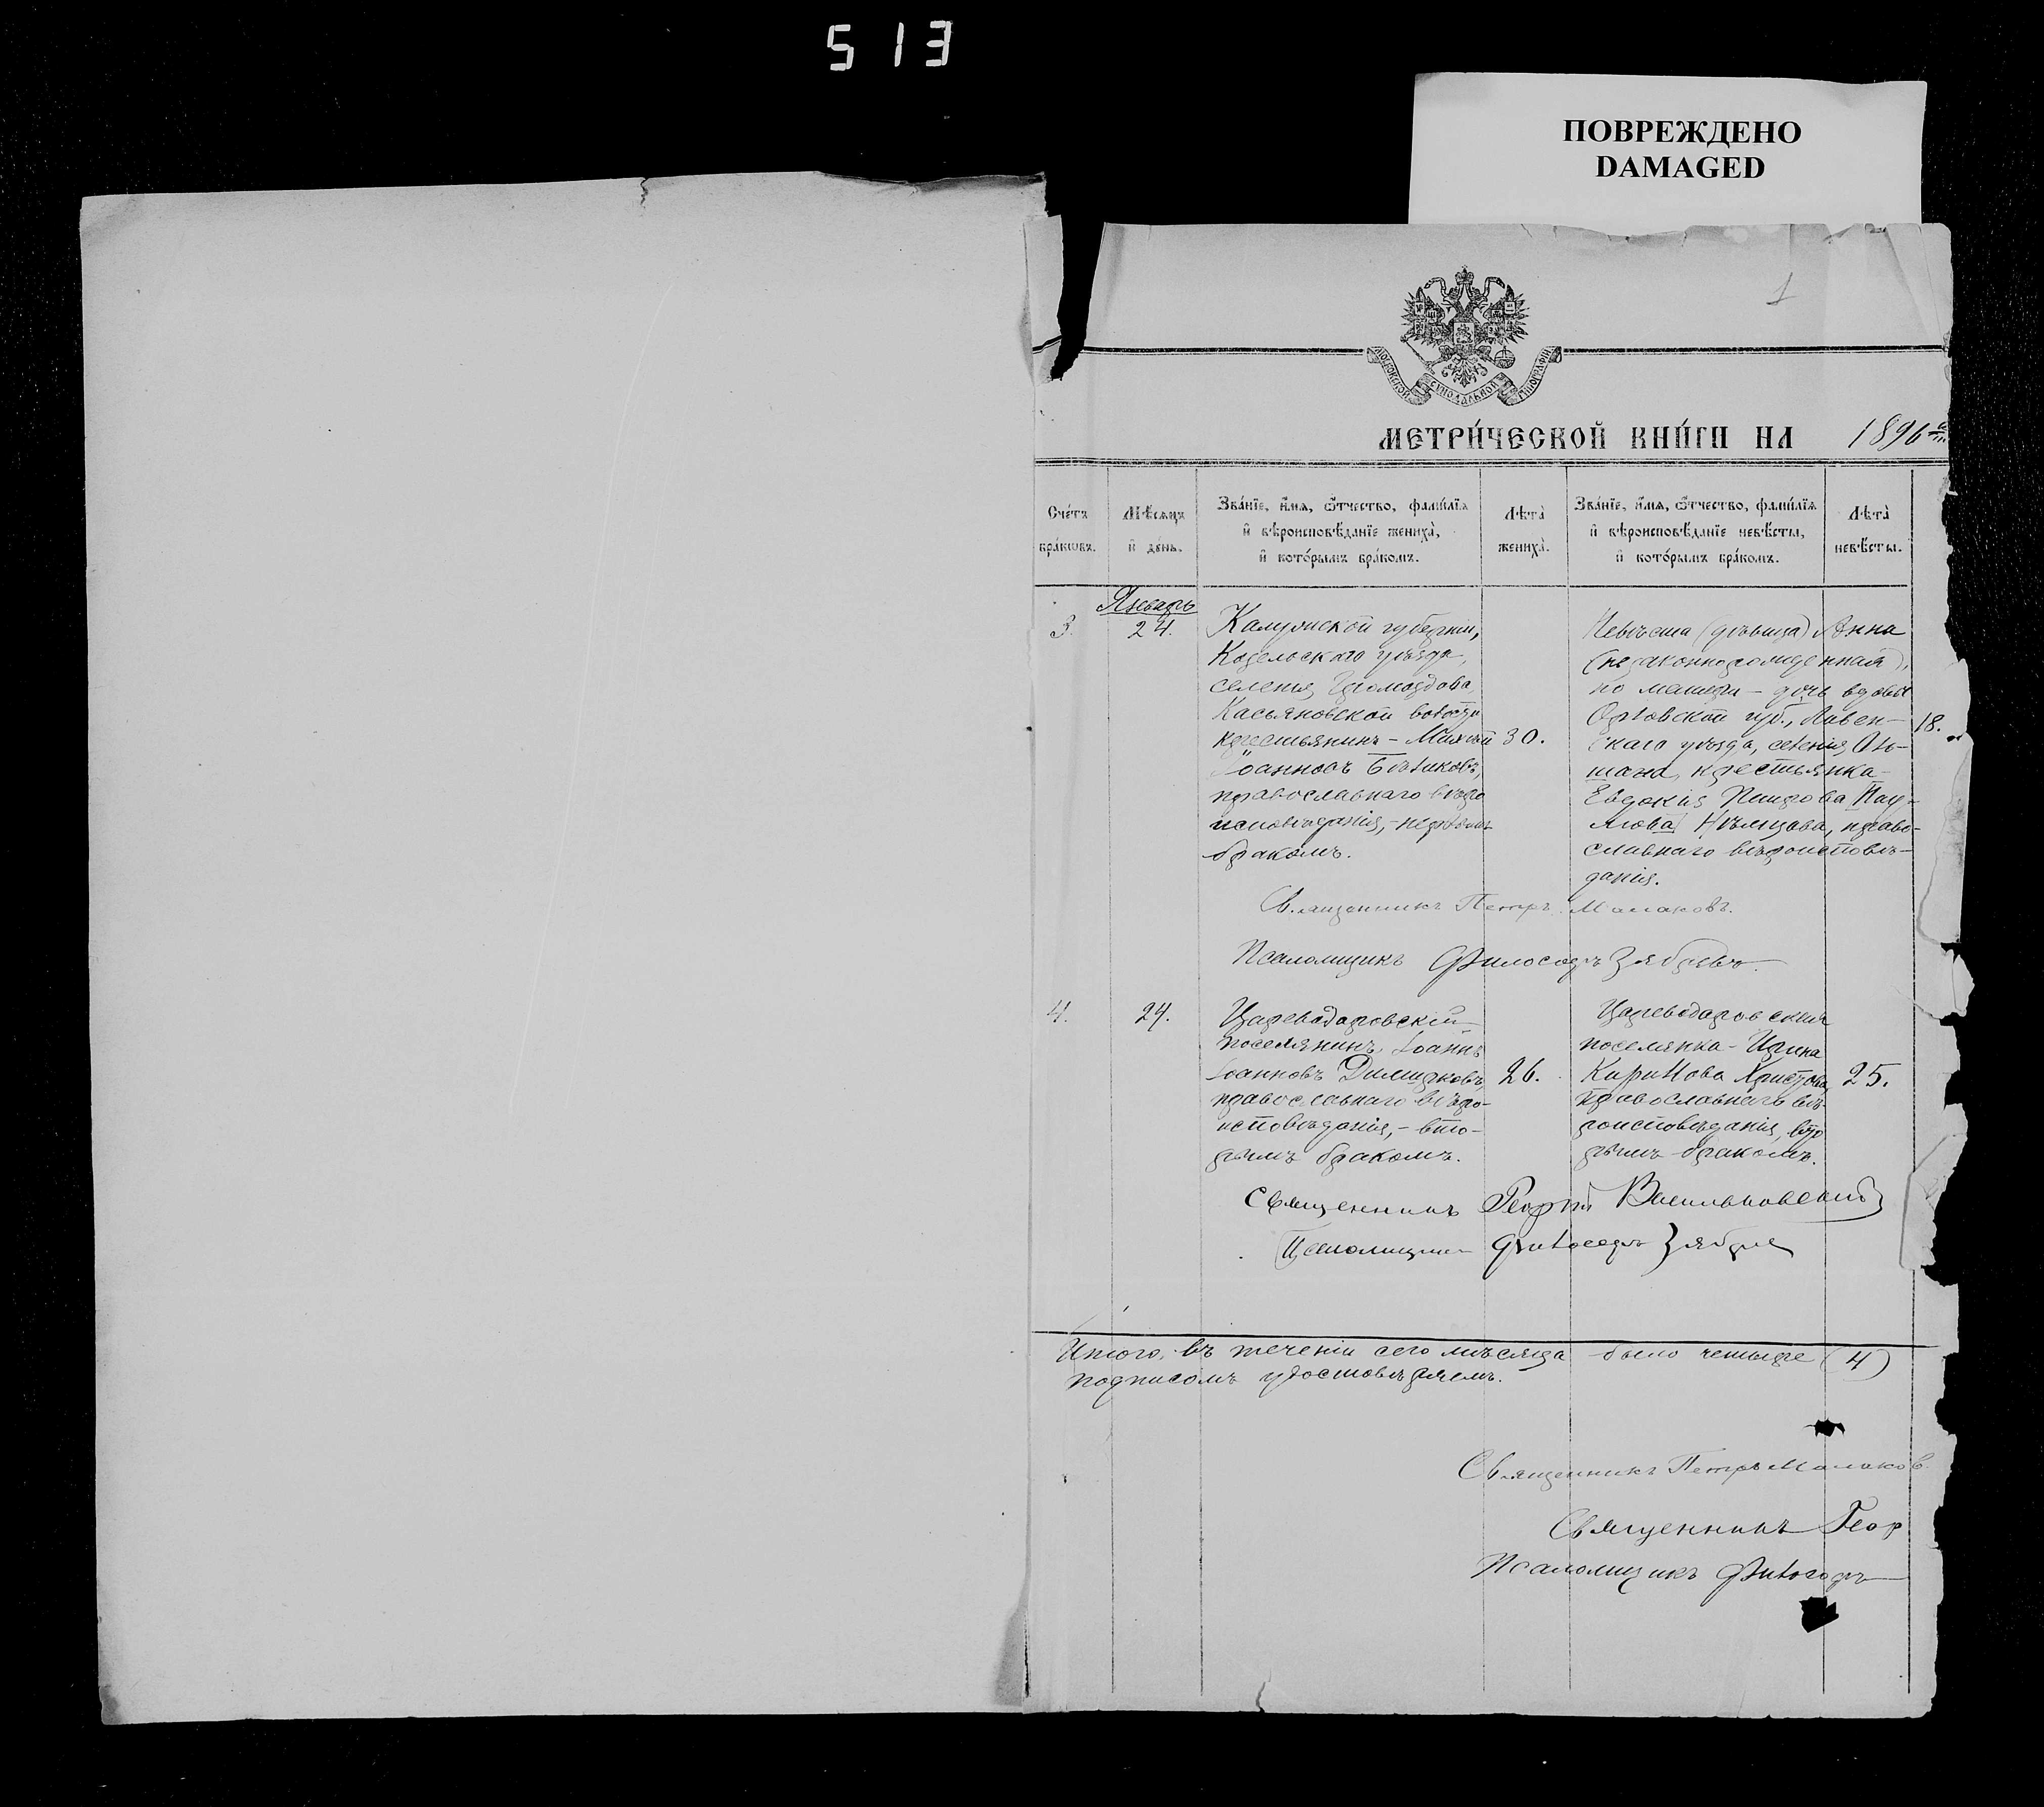 513
ПОВРЕЖДЕНО
DAMAGED
1
МОСКОВСКОЙ СѴНОДАЛЬНОЙ ТИПОГРАФІИ
МЕТРИ́ЧЕСКОЙ КНИ́ГИ НА 1896
Счетъ браковъ.
Мѣсяцъ и день.
Званіе, имя, отчество, фамилія
и вѣроисповѣданіе жениха,
и которымъ бракомъ.
Лѣта
жениха.
Званіе, имя, отчество, фамилія
и вѣроисповѣданіе невѣсты,
и которымъ бракомъ.
Лѣта
невѣсты.
Январь
3.
24.
Калужской губерніи,
Козельскаго уѣзда,
селенія
Касьяновской волости
крестьянинъ – Михаилъ
Іоанновъ
православнаго вѣро
исповѣданія, – первымъ
бракомъ.
30.
Невѣста (дѣвица) Анна
(незаконнорожденная),
по матери – дочь вдовы
Орловской губ., Ливен-
скаго уѣзда, селенія Оль-
шана, крестьянка –
Евдокія Петрова Нау-
мова Нѣмцова, право-
славнаго вѣроисповѣ-
данія.
18.
Священникъ Петръ Малаховъ.
Псаломщикъ Филосодръ Зябревъ.
4.
24.
Цареводаровскій
поселянинъ, Іоаннъ
Іоанновъ Димитровъ,
православнаго вѣро-
исповѣданія, – вто-
рымъ бракомъ.
26.
Цареводаровская
поселянка – Ирина
Кирилова Христова,
православнаго вѣ-
роисповѣданія, вто
рымъ бракомъ.
25.
Священникъ Георгій Васильковскій
Псаломщикъ
Итого, въ теченіи сего мѣсяца было четыре (4)
подписомъ удостовѣряемъ.
Священникъ Петръ Малахов
Священникъ Геор
Псаломщикъ